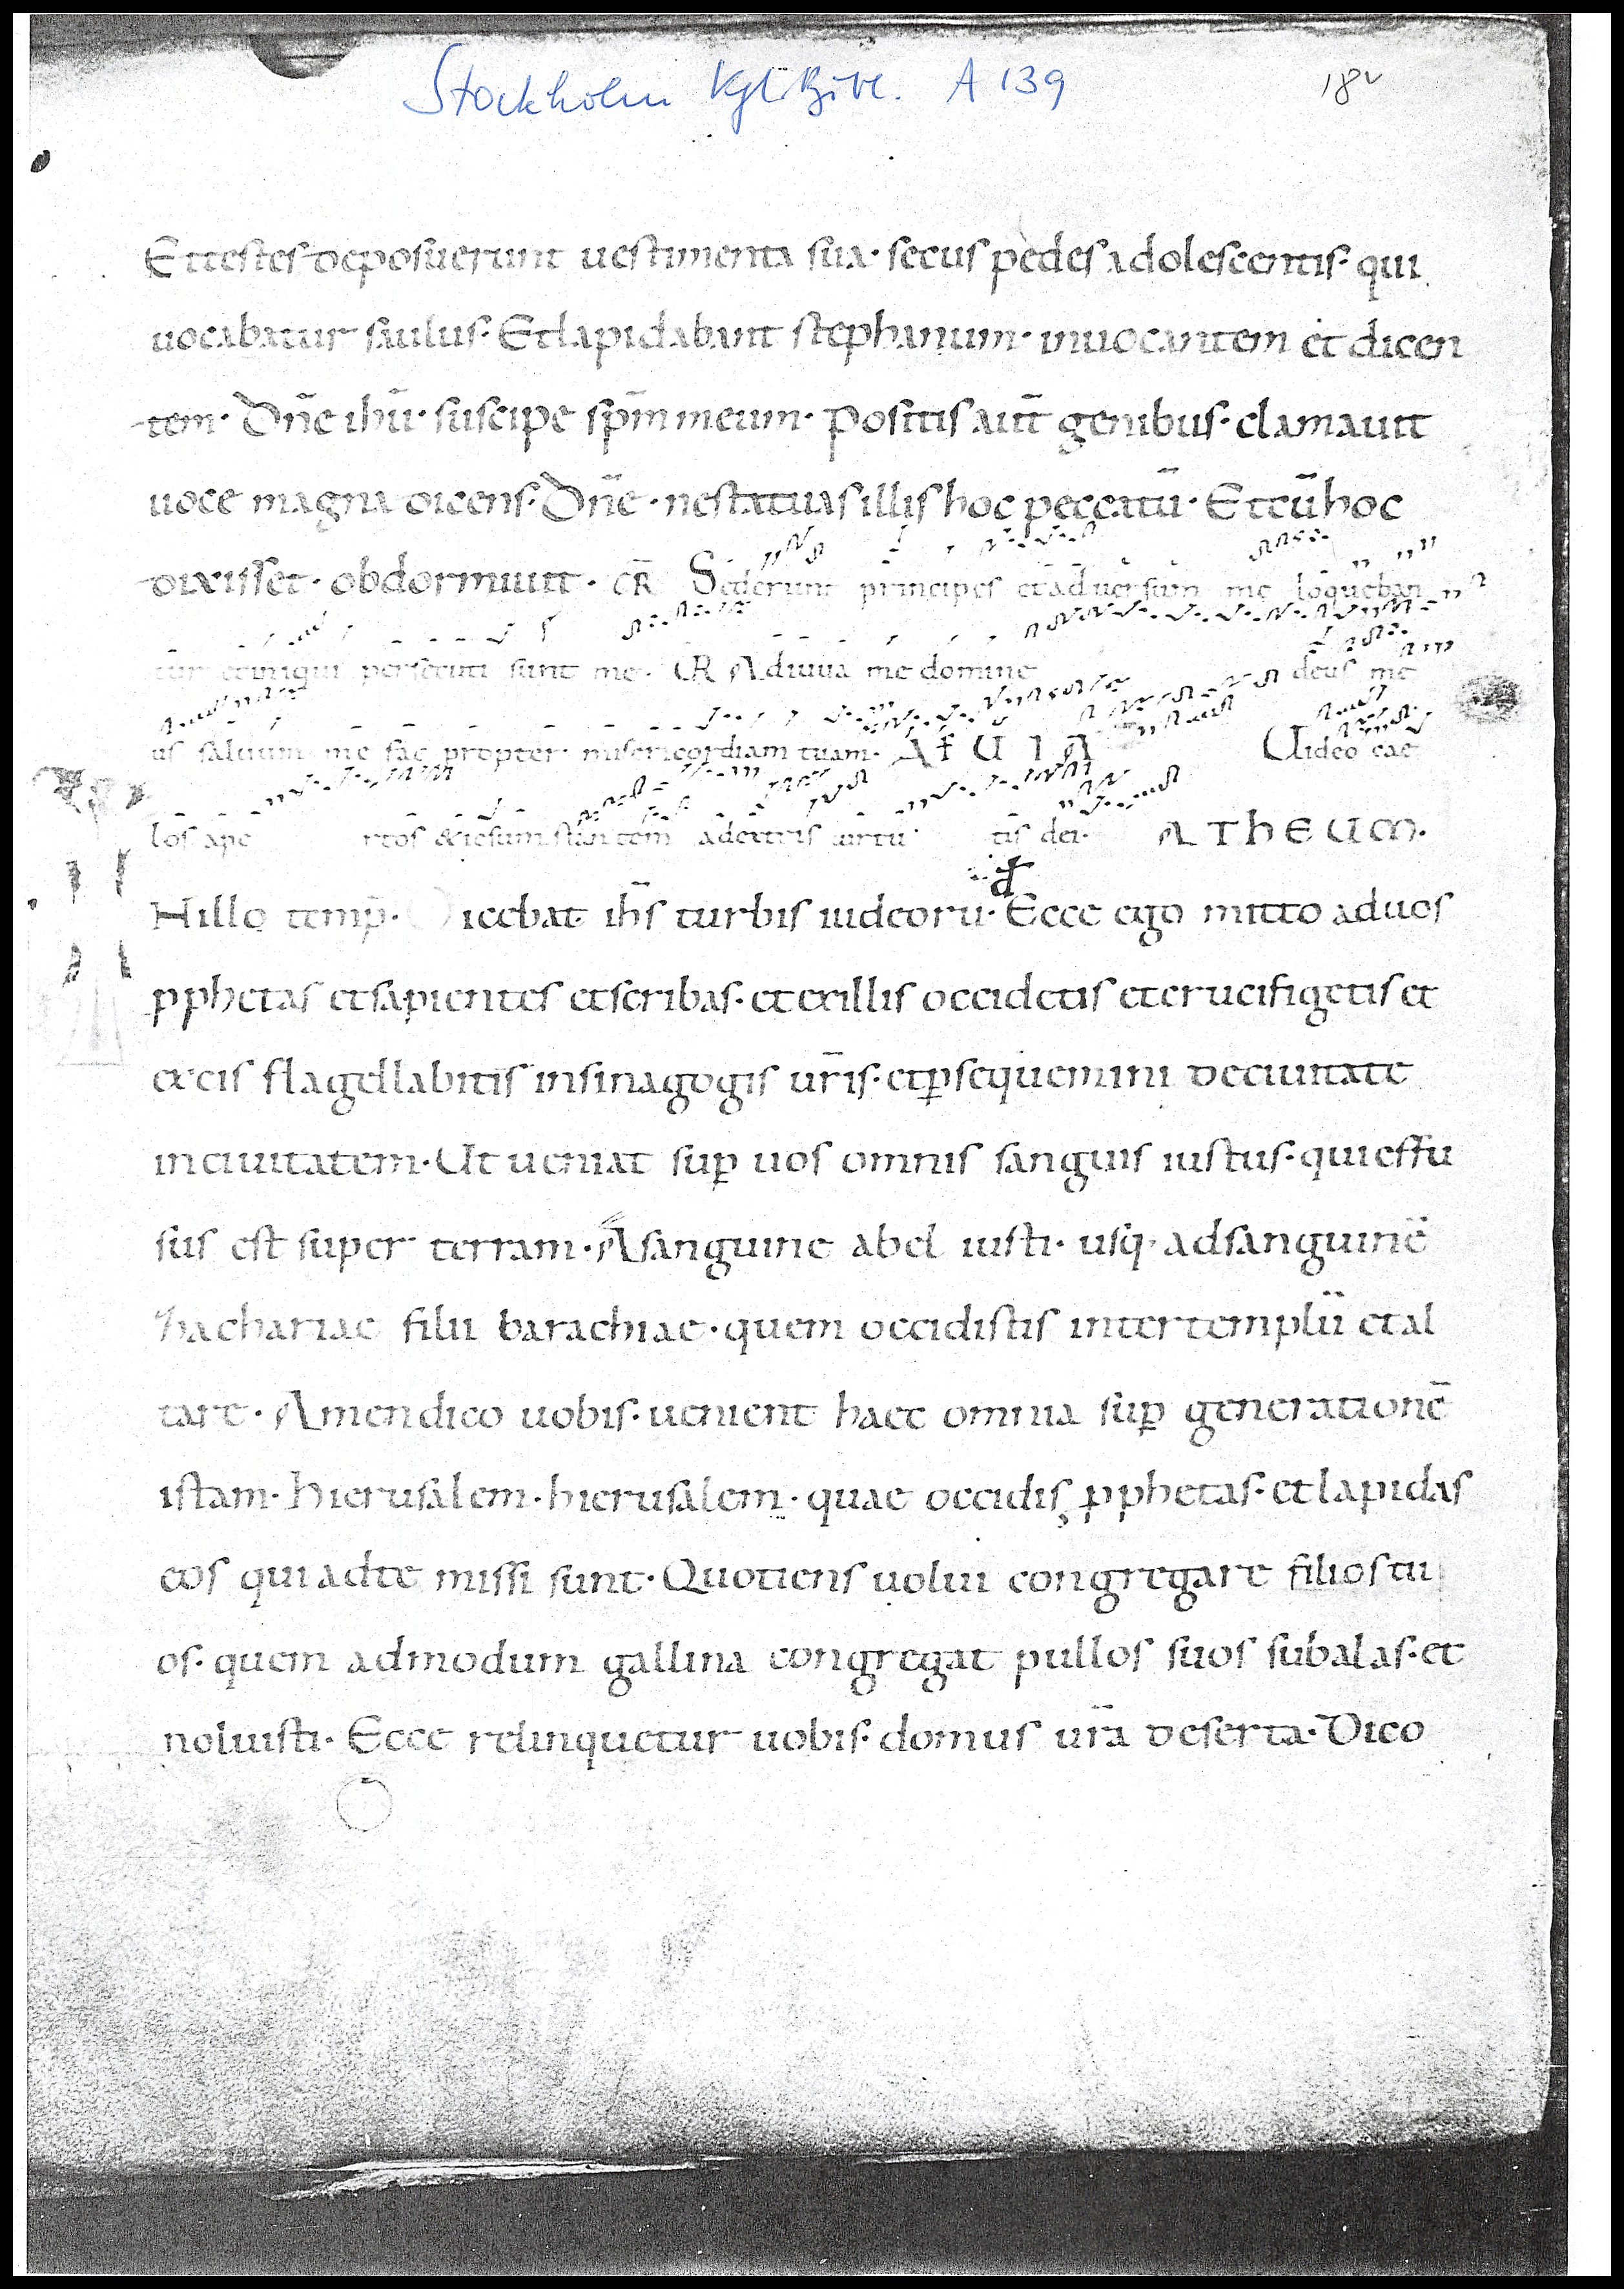 Stockholm Kgl. Bibl. A 139 18v
Et testes deposuerunt uestimenta sua · secus pedes adolescentis · qui
uocabatur saulus · Et lapidabant stephanum · inuocantem et dicen
tem · Dn̄e ihū · suscipe sp̄m meum · Positis aut̄ genibus · clamauit
uoce magna dicens · Dn̄e · ne statuas illis hoc peccatū · Et cū hoc
dixisset · obdormiuit · GR̄ Sederunt principes et aduersum me loqueban
tur et iniqui persecuti sunt me · GR Adiuua me domine deus me
us saluum me fac propter misericordiam tuam · A Ł U I A Uideo cae
los ape rtos & iesum stantem a dextris uirtu tis dei · ATHEUM ·
IN illo temp̄ · Dicebat ihs̄ turbis iudeorū · Ecce ego mitto ad uos
ꝓphetas et sapientes et scribas · et ex illis occidetis et crucifigetis et
ex eis flagellabitis in sinagogis ur̄is · et ꝑsequemini de ciuitate
in ciuitatem · Ut ueniat suꝑ uos omnis sanguis iustus · qui effu
sus est super terram · A sanguine abel iusti · usq · ad sanguinē
zachariae filii barachiae · quem occidistis inter templū et al
tare · Amen dico uobis · uenient haec omnia suꝑ generationē
istam · hierusalem · hierusalem · quae occidis ꝓphetas · et lapidas
eos qui ad te missi sunt · Quotiens uolui congregare filios tu
os · quem admodum gallina congregat pullos suos sub alas · et
noluisti · Ecce relinquetur uobis · domus ur̄a deserta · Dico